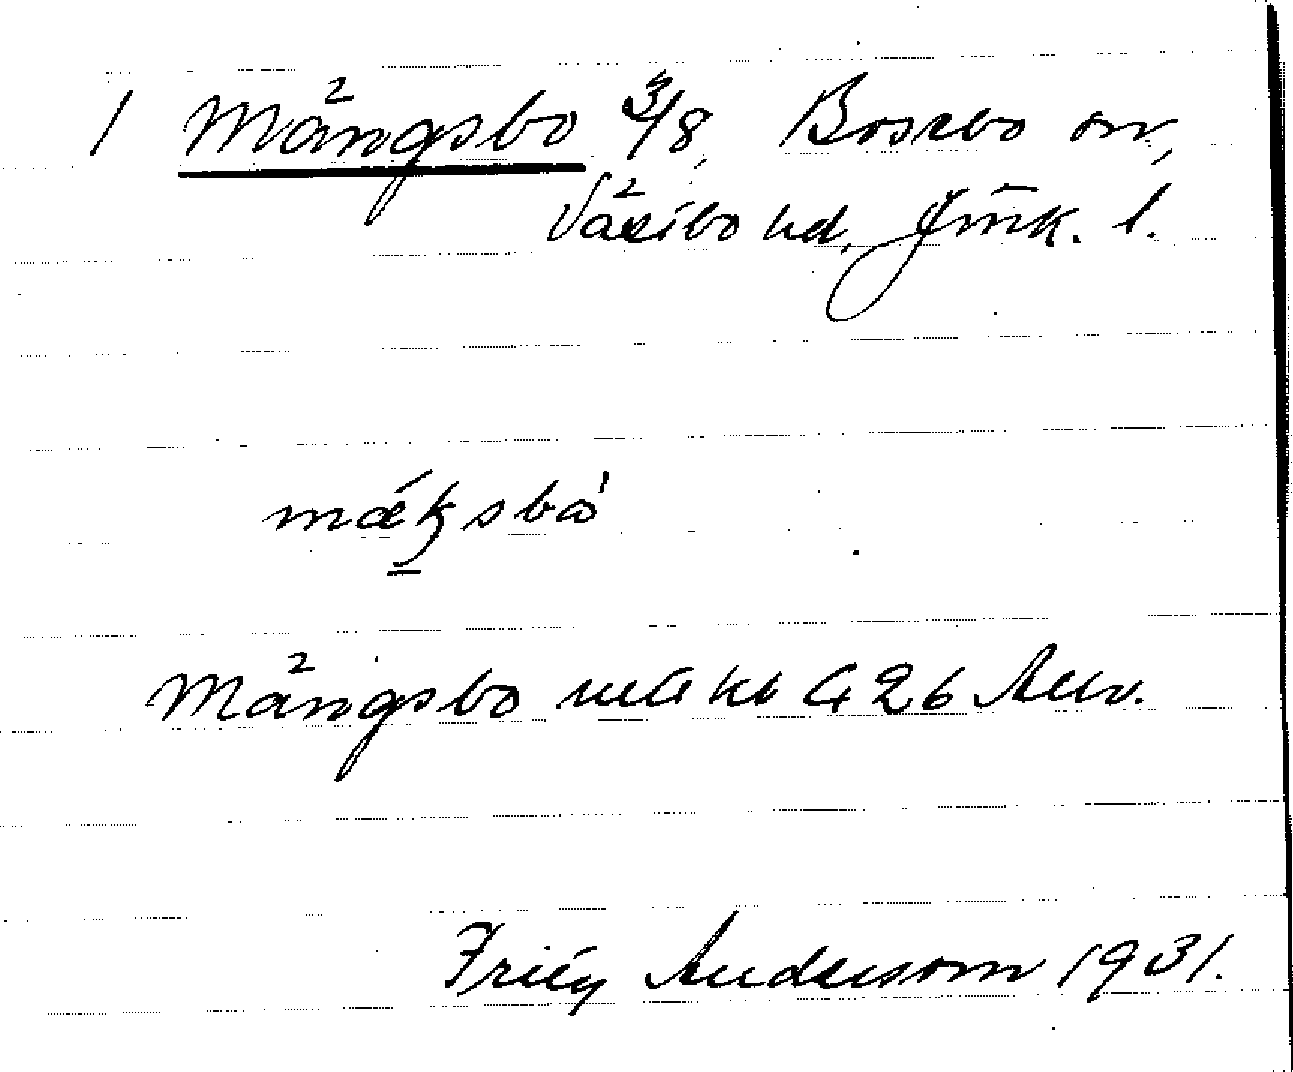 1 Mångsbo 3/8, Bosebo sn,
Västbo hd, Jönk. l.
mæksbo
Mångsbo mtl kb G 26 Anv.
Friëg Anderson 1931.